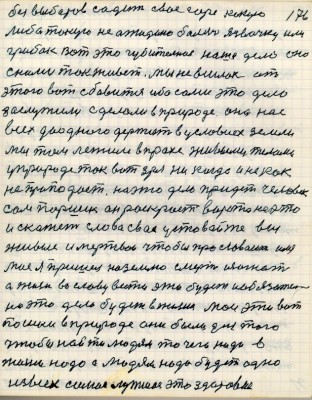 без выборов садит свое горе какую 176
либо такую не ожидано болячку язвочку или
грибок Вот это губительное наше дело оно
с нами так живет. мы не в силах от
этого вот сбавится ибо сами это дело
заслужили сделали в природе она нас
всех до одного держит в условиях земли
мы там лежим в прахе живыми телами
у природе так вот зря никогда и никак
не пропадает. на это дело придет человек
сам Паршек он раскроет ворота на это
и скажет слова свои уставайте вы
живые и мертвые чтобы прославили имя
мое я пришел на землю смерть изгнать
а жизнь во славу вести это будет и обязательно
на это дело будет в жизни мои эти вот
пошли в природе они были для того
чтобы найти людям то чего надо в
жизни надо а людям надо будет одно
из всех самое лучшее это здоровье